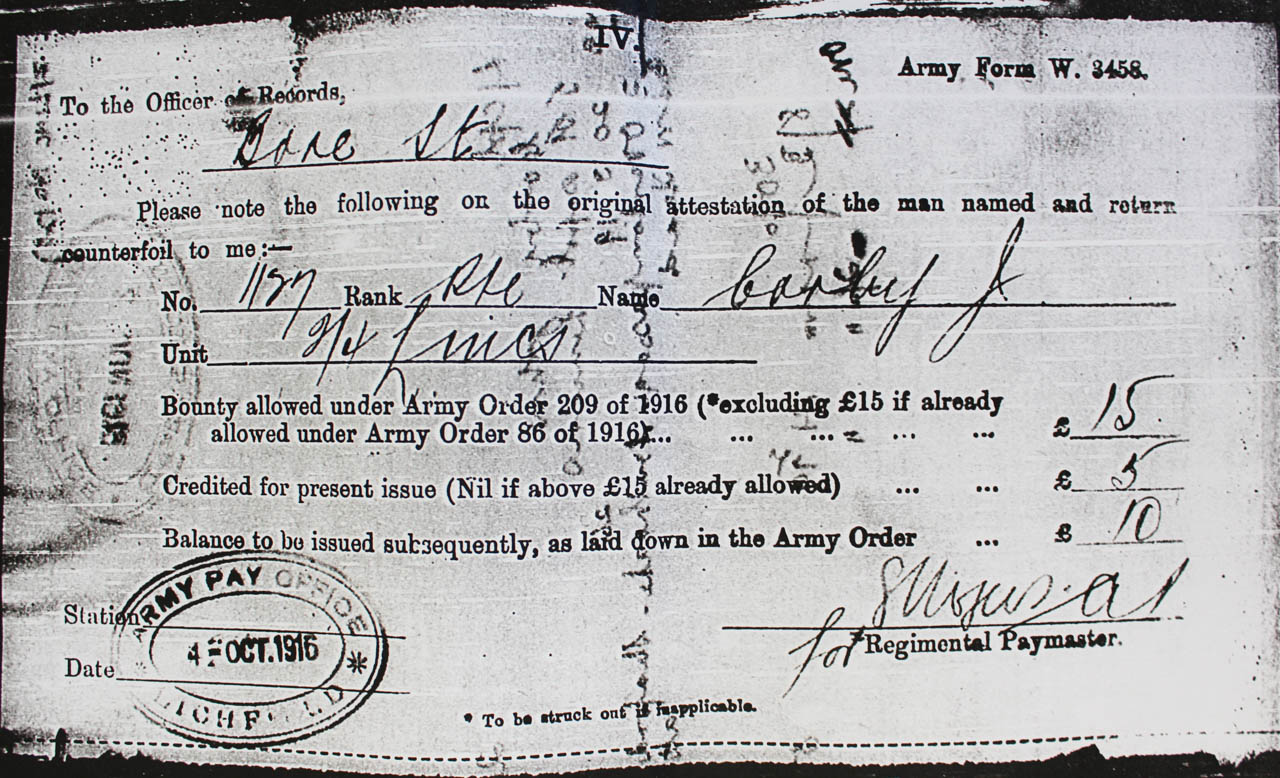 IV.
Army Form W. 3458.
To the Officer of Records,
St
Please note the following on the original attestation of the man named and return
counterfoil to me :—
No. 1127 Rank Pte Name J
Unit Lincs
Bounty allowed under Army Order 209 of 1916 (*excluding £15 if already
allowed under Army Order 86 of 1916)... ... ... ... ... £ 15
Credited for present issue (Nil if above £15 already allowed) ... ... £ 5
Balance to be issued subsequently, as laid down in the Army Order ... £ 10
Station
ARMY PAY OFFICE
4 OCT. 1916
LICHFIELD
Date
for Regimental Paymaster.
* To be struck out if inapplicable.